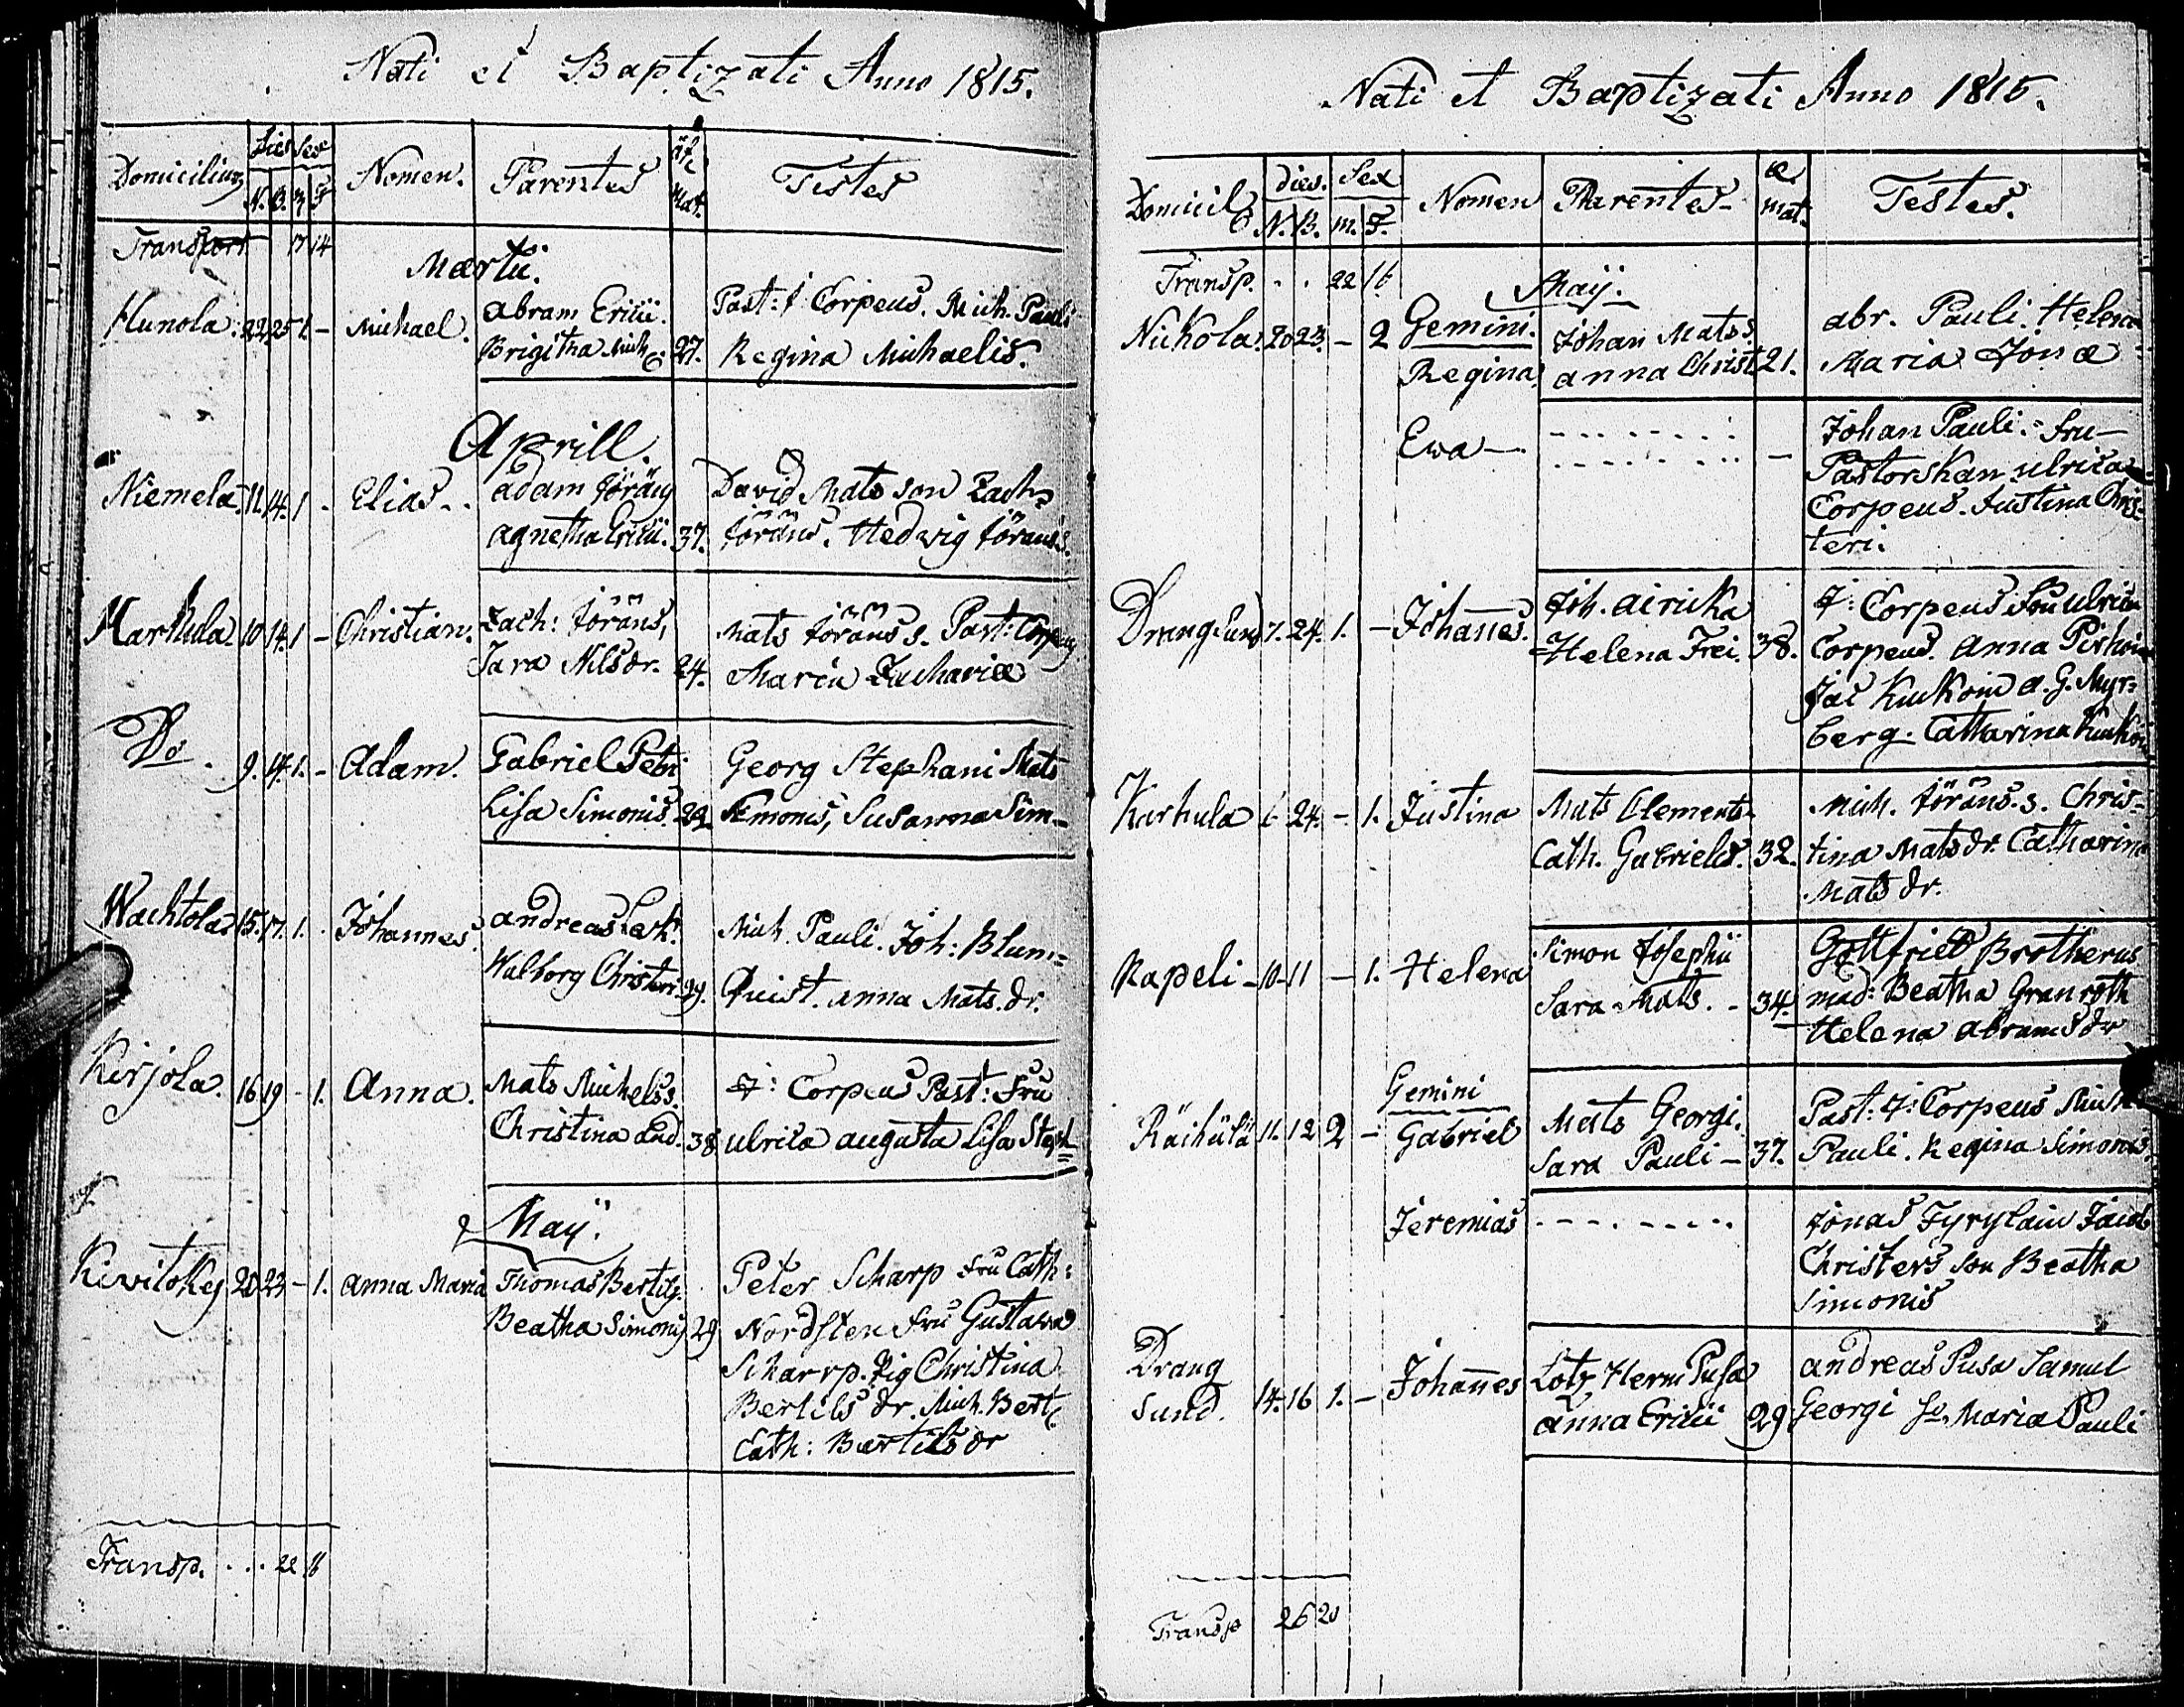 Nati et Baptizati Anno 1815.
Domicilium Dies Sex Nomen. Parentes Æt. Testes
N. B. M F Mat.
Transport 17 14
Martii.
Hunola. 22 25 1 - Michael. Abram Ericii. Past: J: Corpeus. Mich. Pauli
Brigitha Mich 27. Regina Michaelis.
Aprill.
Niemelä. 11. 14. 1 - Elias - Adam Jörans David Mats son Zach
Agnetha Ericii. 37. Jörans. Hedwig Jörans
Karhula. 10 14. 1 - Christian. Zach: Jörans, Mats Jörans s. Past: Corpeus
Sara Nilsdr. 24. Maria Zachariæ
Do. 9. 14. 1. - Adam. Gabriel Petri Georg Stephani Mats
Lisa Simonis. 22 Simonis, Susanna Sim-
Wachtola 15. 17. 1. Johannes. Andreas Esk. Mich. Pauli. Joh: Blum=
Walborg Christeri 29. Quist. Anna Mats. dr.
Kirjola. 16 19 - 1. Anna. Mats Michels s. J: Corpeus Past: Fru
Christina And. 38 Ulrica Augusta Lisa Steph
Maij.
Kivitokej 20 23 - 1. Anna Maria Thomas Bertils. Peter Scharp Fru Cath:
Beatha Simonis 29 Nordsten Fru Gustava
Scharrp. Pig Christina
Bertils dr. Mich. Bert
Cath: Bertils dr
Transp. . . . 22 16
Nati et Baptizati Anno 1815.
Domicil Dies. Sex Nomen Parentes- Æ. Testes.
N. B. M. F. mat.
Transp. . . 22 16
Maij.
Nickola. 20 23. - 2 Gemini. Johan Mats s. Abr. Pauli. Helena
Regina Anna Christ 21. Maria Jonæ
Ewa - Johan Pauli. Fru
Pastorskan Ulrica
Corpeus. Justina Chris-
teri.
Drangsund 7. 24. 1. - Johannes. Joh. Airicka J: Corpeus Fru Ulrica
Helena Frei. 38. Corpeus. Anna Pishoin
Jac Kuckoin A. G. Myr=
berg. Catharina Kuckoin
Karhula 6 24. - 1. Justina Mats Clements Mich. Jörans. s. Chris-
Cath. Gabrielis. 32. tina Mats dr. Catharina
Mats dr.
Kapeli - 10 - 11 - 1. Helena Simon Josephii Gottfried Brotherus
Sara Mats. - 34. mad: Beatha Granroth
Helena Abrams dr
Gemini
Räihälä 11. 12 2 - Gabriel Mats Georgi. Past: J: Corpeus Mich
Sara Pauli - 37. Pauli. Regina Simonis.
Jeremias Jonas Tyrylain Jacob
Christers son Beatha
Simonis
Drang
Sund. 14. 16 1. - Johannes Lotz Herm Pusa Andreas Pusa Samul
Anna Ericii 29 Georgi Maria Pauli
Transp 26 20